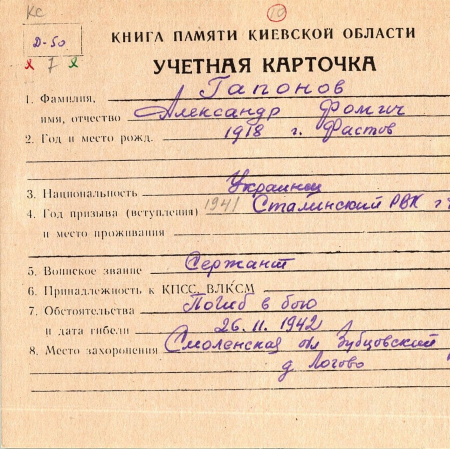 КС
10
Д-50
7
КНИГА ПАМЯТИ КИЕВСКОЙ ОБЛАСТИ
УЧЕТНАЯ КАРТОЧКА
1. Фамилия, Гапонов
имя, отчество Александр Фомич
2. Год и место рожд. 1918 г. Фастов
3. Национальность Украинец
4. Год призыва (вступления) 1941 Сталинский РВК г
и место проживания
5. Воинское звание Сержант
6. Принадлежность к КПСС, ВЛКСМ
7. Обстоятельства Погиб в бою
и дата гибели 26.11.1942
8. Место захоронения Смоленская обл Зубцовский
д. Логово